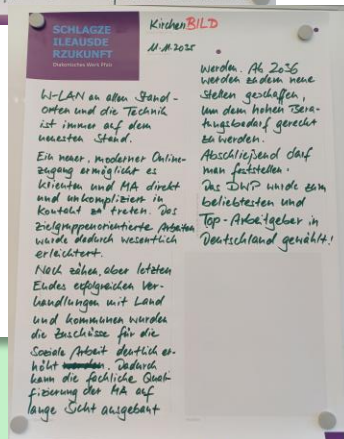 SCHLAGZE
ILEAUSDE
RZUKUNFT
Diakonisches Werk Pfalz
KirchenBILD
11.11.2035
W-LAN an allen Stand-
orten und die Technik
ist immer auf dem
neuesten Stand.
Ein neuer, moderner Online-
zugang ermöglicht es
Klienten und MA direkt
und unkompliziert in
Kontakt zu treten. Das
zielgruppenorientierte Arbeiten
wurde dadurch wesentlich
erleichtert.
Nach zähen, aber letzten
Endes erfolgreichen Ver-
handlungen mit Land
und Kommunen wurden
die Zuschüsse für die
Soziale Arbeit deutlich er-
höht. Dadurch
kann die fachliche Quali-
fizierung der MA auf
lange Sicht ausgebaut
werden. Ab 2036
werden zudem neue
Stellen geschaffen,
um dem hohen Bera-
tungsbedarf gerecht
zu werden.
Abschließend darf
man feststellen.
Das DWP wurde zum
beliebtesten und
Top-Arbeitgeber in
Deutschland gewählt!